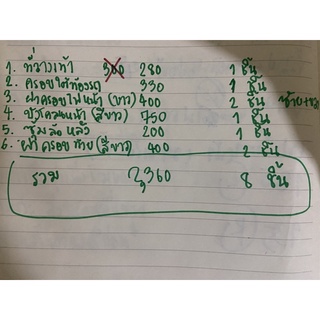 1. ที่วางเท้า 300 280 1 ชิ้น
2. ครอบใต้ท้องรถ 330 1 ชิ้น
3. ฝาครอบไฟหน้า (ขาว) 400 2 ชิ้น ซ้าย+ขวา
4. บังลมหน้า (สีขาว) 750 1 ชิ้น
5. ซุ้มล้อหลัง 200 1 ชิ้น
6. ฝาครอบท้าย (สีขาว) 400 2 ชิ้น
รวม 2,360 8 ชิ้น